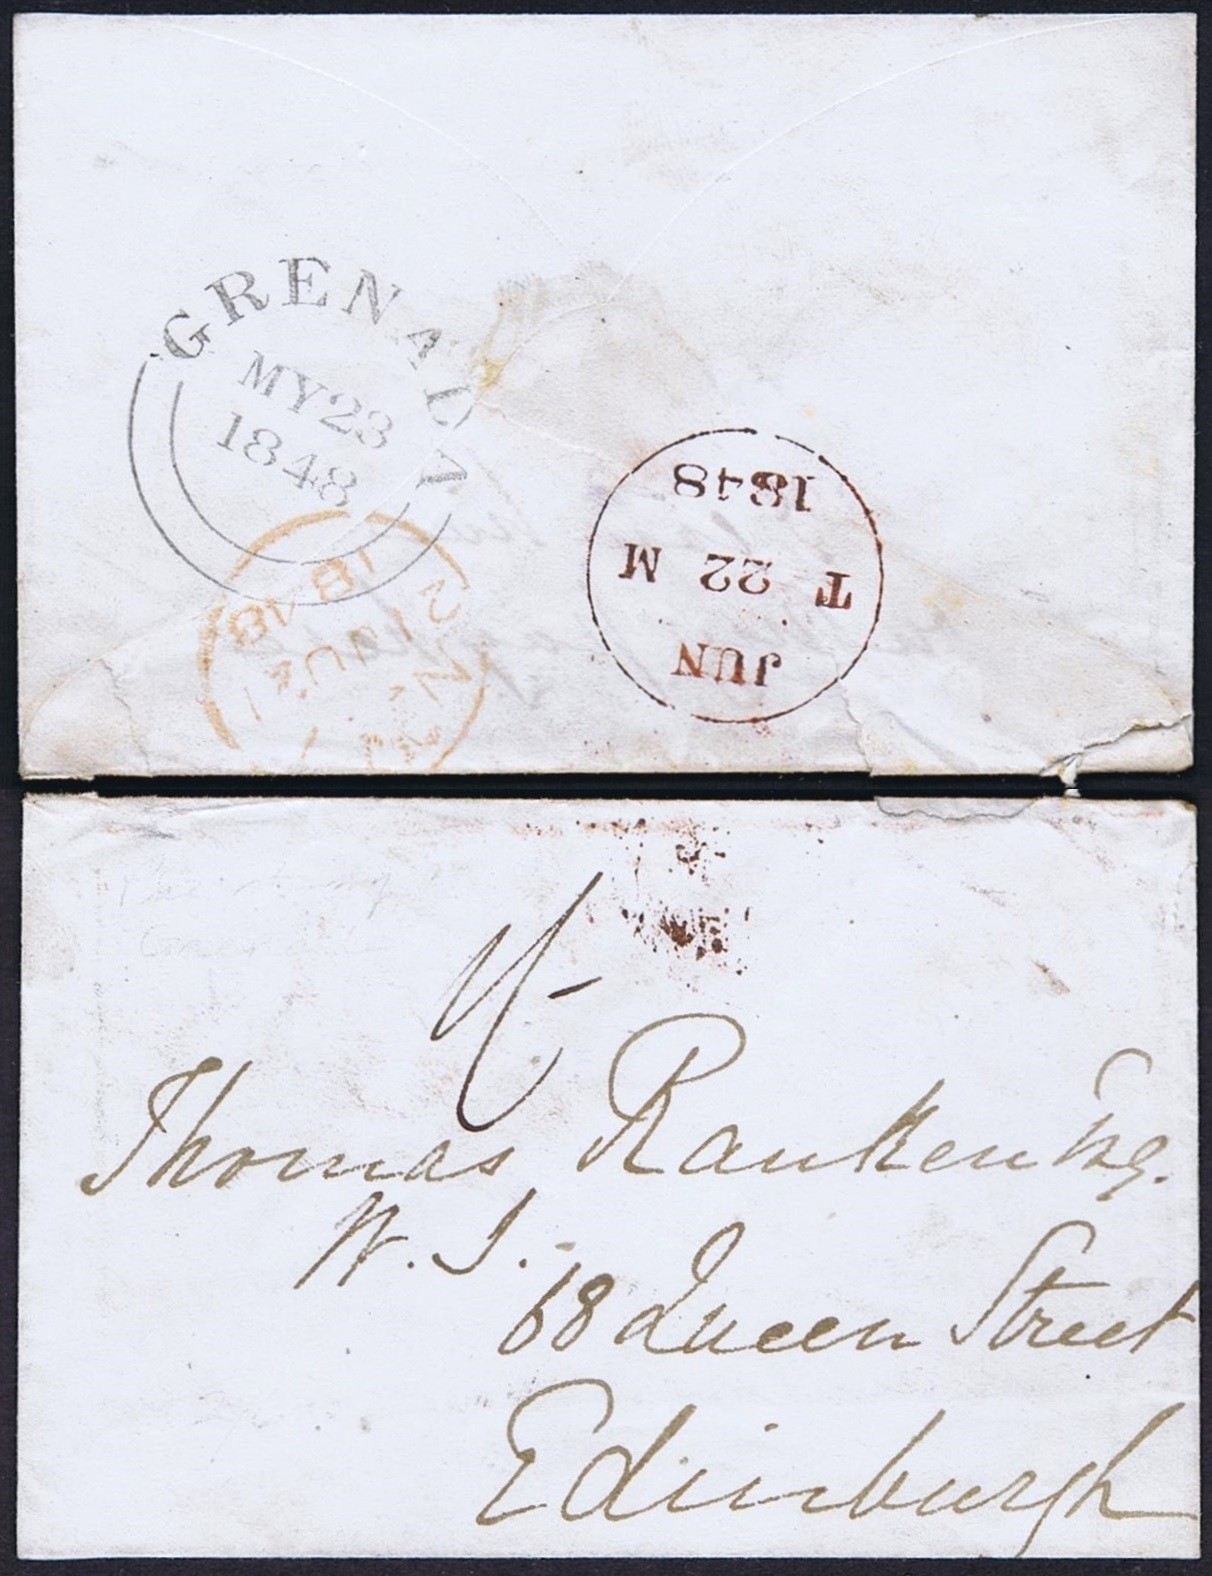 GRENADA
MY23
1848
1848
T 22 M
JUN
21 JU
1848
1/-
Thomas Ranken Esq.
W. S.
68 Queen Street
Edinburgh